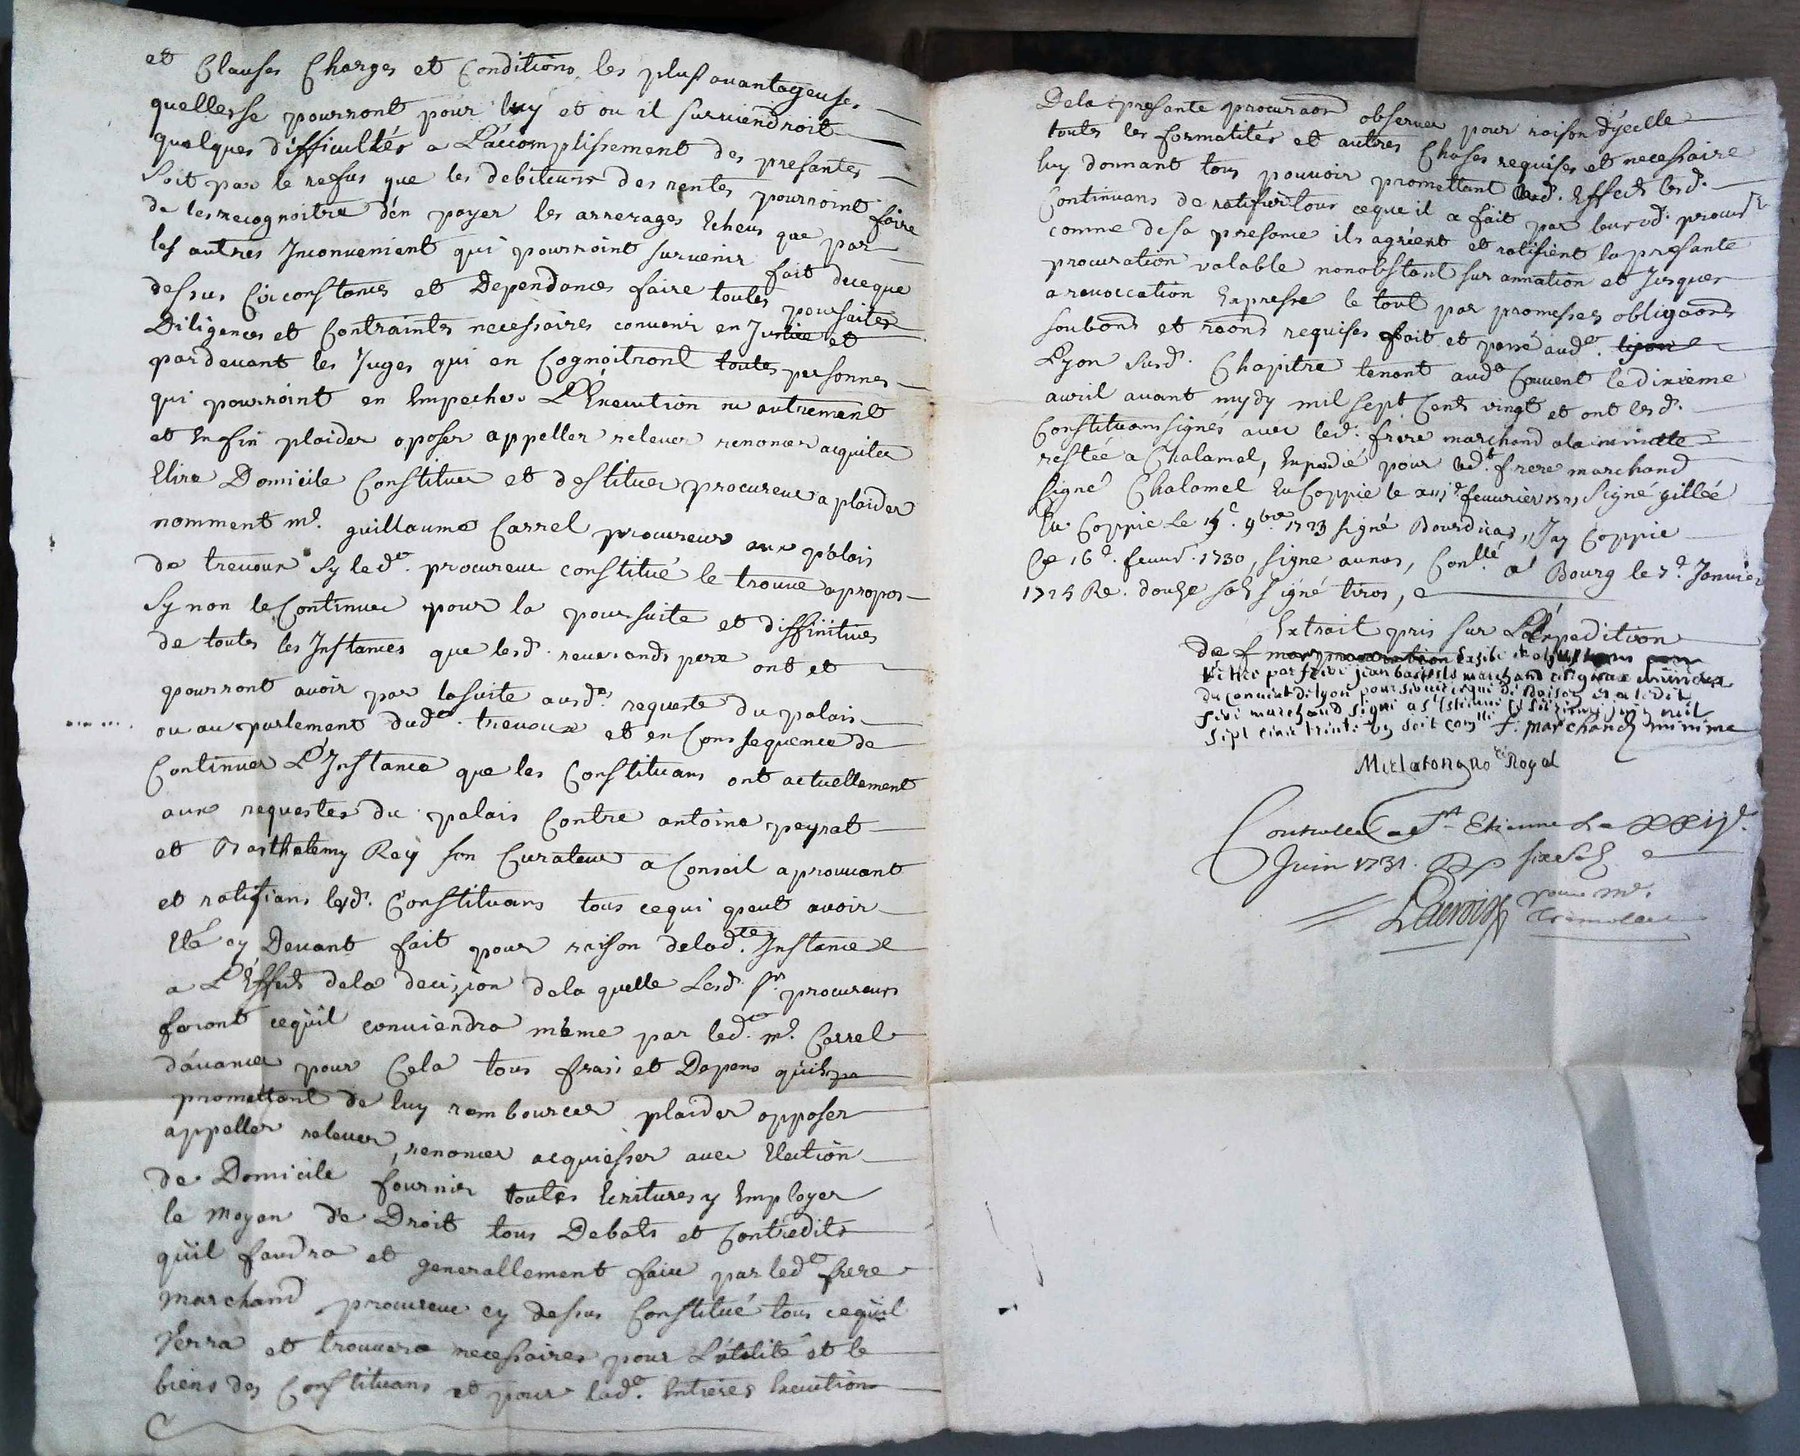 et Clauses Charges et Conditions les plus auantageuses
quellesse pourront pour luy et ou il suruiendroit
quelques difficultés a L'accomplissement des presantes
Soit par le refus que les debiteurs des rentes pourroint faire
de les recognoitre d'en payer les arrerages Echeus que par
les autres Inconuenient qui pourroint suruenir fait de ce que
dessus Circonstances et Dependances faire toutes poursuites
Diligences et Contraintes necessaires conuenir en Justice et
pardeuant les Juges qui en Cognoitront toutes personnes
qui pourroint en Empecher L'Execution ou autrement
et Enfin plaider oposer appeller releuer renoncer acquiter
Elire Domicile Constituer et destituer procureur a plaider
nomment me. guillaume Carrel procureur aux palais
de treuoux Sy led. procureur constitué le trouue apropos
Sy non le Continuer pour la poursuite et diffinitiues
de toutes les Instances que lesd. reuerands pere ont et
pourront auoir par la suite ausd. requeste du palais
ou au parlement dud. treuoux et en Consequence de
Continuer L'Instance que les Constituans ont actuellement
aux requestes du palais Contre antoine peyrat
et Barthelemy Rey son Curateur a Conseil aprouuant
et ratifians lesd. Constituans tous ce qui peut auoir
Eté cy Deuant fait pour raison de lad.te Instance
a L'Effect de la decizion de la quelle Lesd. srs procureurs
feront ce qu'il conuiendra même par led. me. Carrel
d'auancer pour Cela tous frais et Depens quils
promettant de luy rembourcer plaider opposer
appeller releuer, renoncer acquiesser auec Election
de Domicile fournir toutes Ecritures y Employer
le moyen de Droit tous Debats et Contredits
qu'il faudra et generallement faire par led. frere
marchand procureur cy dessus Constitué tous ce qu'il
Verra et trouuera necessaires pour L'utilité et le
biens des Constituans et pour lad. Entieres Execution
De la presante procuraon obseruer pour raison d'ycelle
toutes les formalités et autres Choses requises et necessaire
luy donnant tous pouuoir promettant lesd. Effect lesd.
Continuans de ratifier tous ce que il a fait par leurd. procur
comme de sa presance ils agréent et ratifient la presante
procuration valable nonobstant surannation et Jusques
a reuoccation Expresse le tout par promesses obligaons
soubons et raons requises fait et passé aud. lyon
Lyon Susd. Chapitre tenant aud. Couuent le dixieme
auril auant mydy mil sept Cent vingt et ont lesd.
Constituans signés auec led. frere marchand a la minutte
restée a Chalamel, Expedié pour led. frere marchand
signé Chalamel En Coppie le feuurier Signé gillée
En Coppie Le 19e. 9bre 1723 signé Bourdicas, Jay Coppie
Ce 16e. feuur. 1730, signe aunos, Conllé a Bourg le 7e. Januier
1725 Re. douze sols signé tiros,
Extrait pris sur L'Expedition
de f Exibé et
retiré par frere jean baptiste marchand religieux minime
du couuent de lyon poursuiuie de raison et a ledit
frere marchand signé a St Estienne ce juin mil
sept cens trente un soit conlle f. marchand minime
re Royal
Controllé a St Etienne Le XXIIe.
Juin 1731. six sols
Lacroix pour Mr.